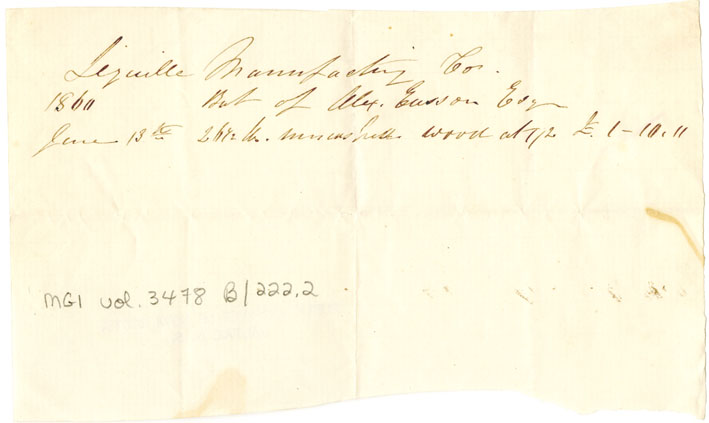 Manufacting Co.
1860 Bot of Alex. Easson Esqr
June 13th wood at 1/2 £. 1-10.11
MG1 vol. 3478 B/222.2